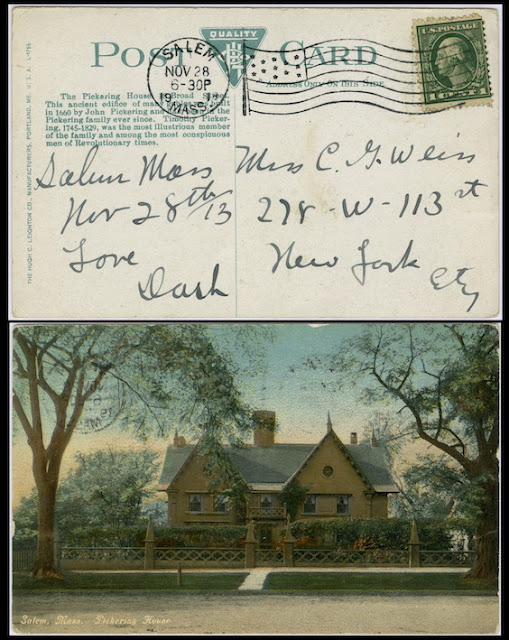 POST CARD
QUALITY
U.S. POSTAGE
SALEM
NOV 28
6-30P
19
MASS.
ADDRESS ONLY ON THIS SIDE
The Pickering House, Broad
This ancient edifice of built
in 1660 by John Pickering and the
Pickering family ever since. Timothy Picker-
ing, 1745-1829, was the most illustrious member
of the family and among the most conspicuous
men of Revolutionary times.
THE HUGH C. LEIGHTON CO., MANUFACTURERS, PORTLAND, ME. U. S. A.
Salem Mass
Nov 28th/13
Love
Dash
Miss C. G. Weiss
278-W-113 st
New York
City
Salem, Mass. Pickering House